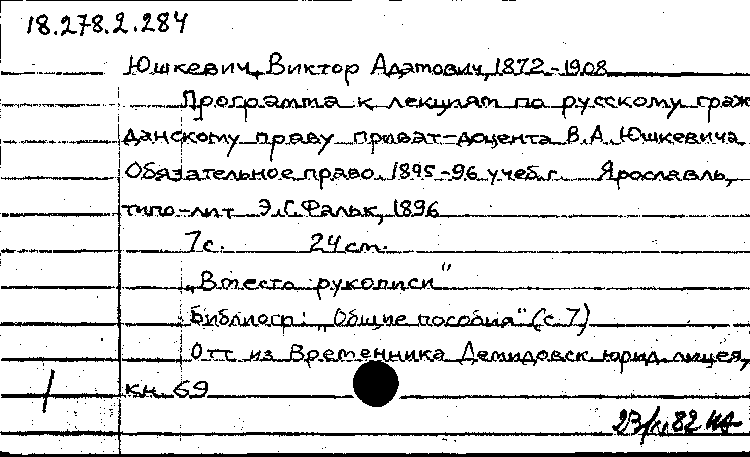 18.278.2.284
Юшкевич, Виктор Адамович, 1872-1908
Программа к лекциям по русскому граж
данскому праву приват-доцента В.А. Юшкевича.
Обязательное право. 1895-96 учеб.г. Ярославль,
типо-лит Э.Г. Фальк, 1896
7с. 24 cm.
„Вместо рукописи"
Библиогр: „Общие пособия" (с. 7)
Отт из Временника Демидовск. юрид. лицея,
кн. 69
82